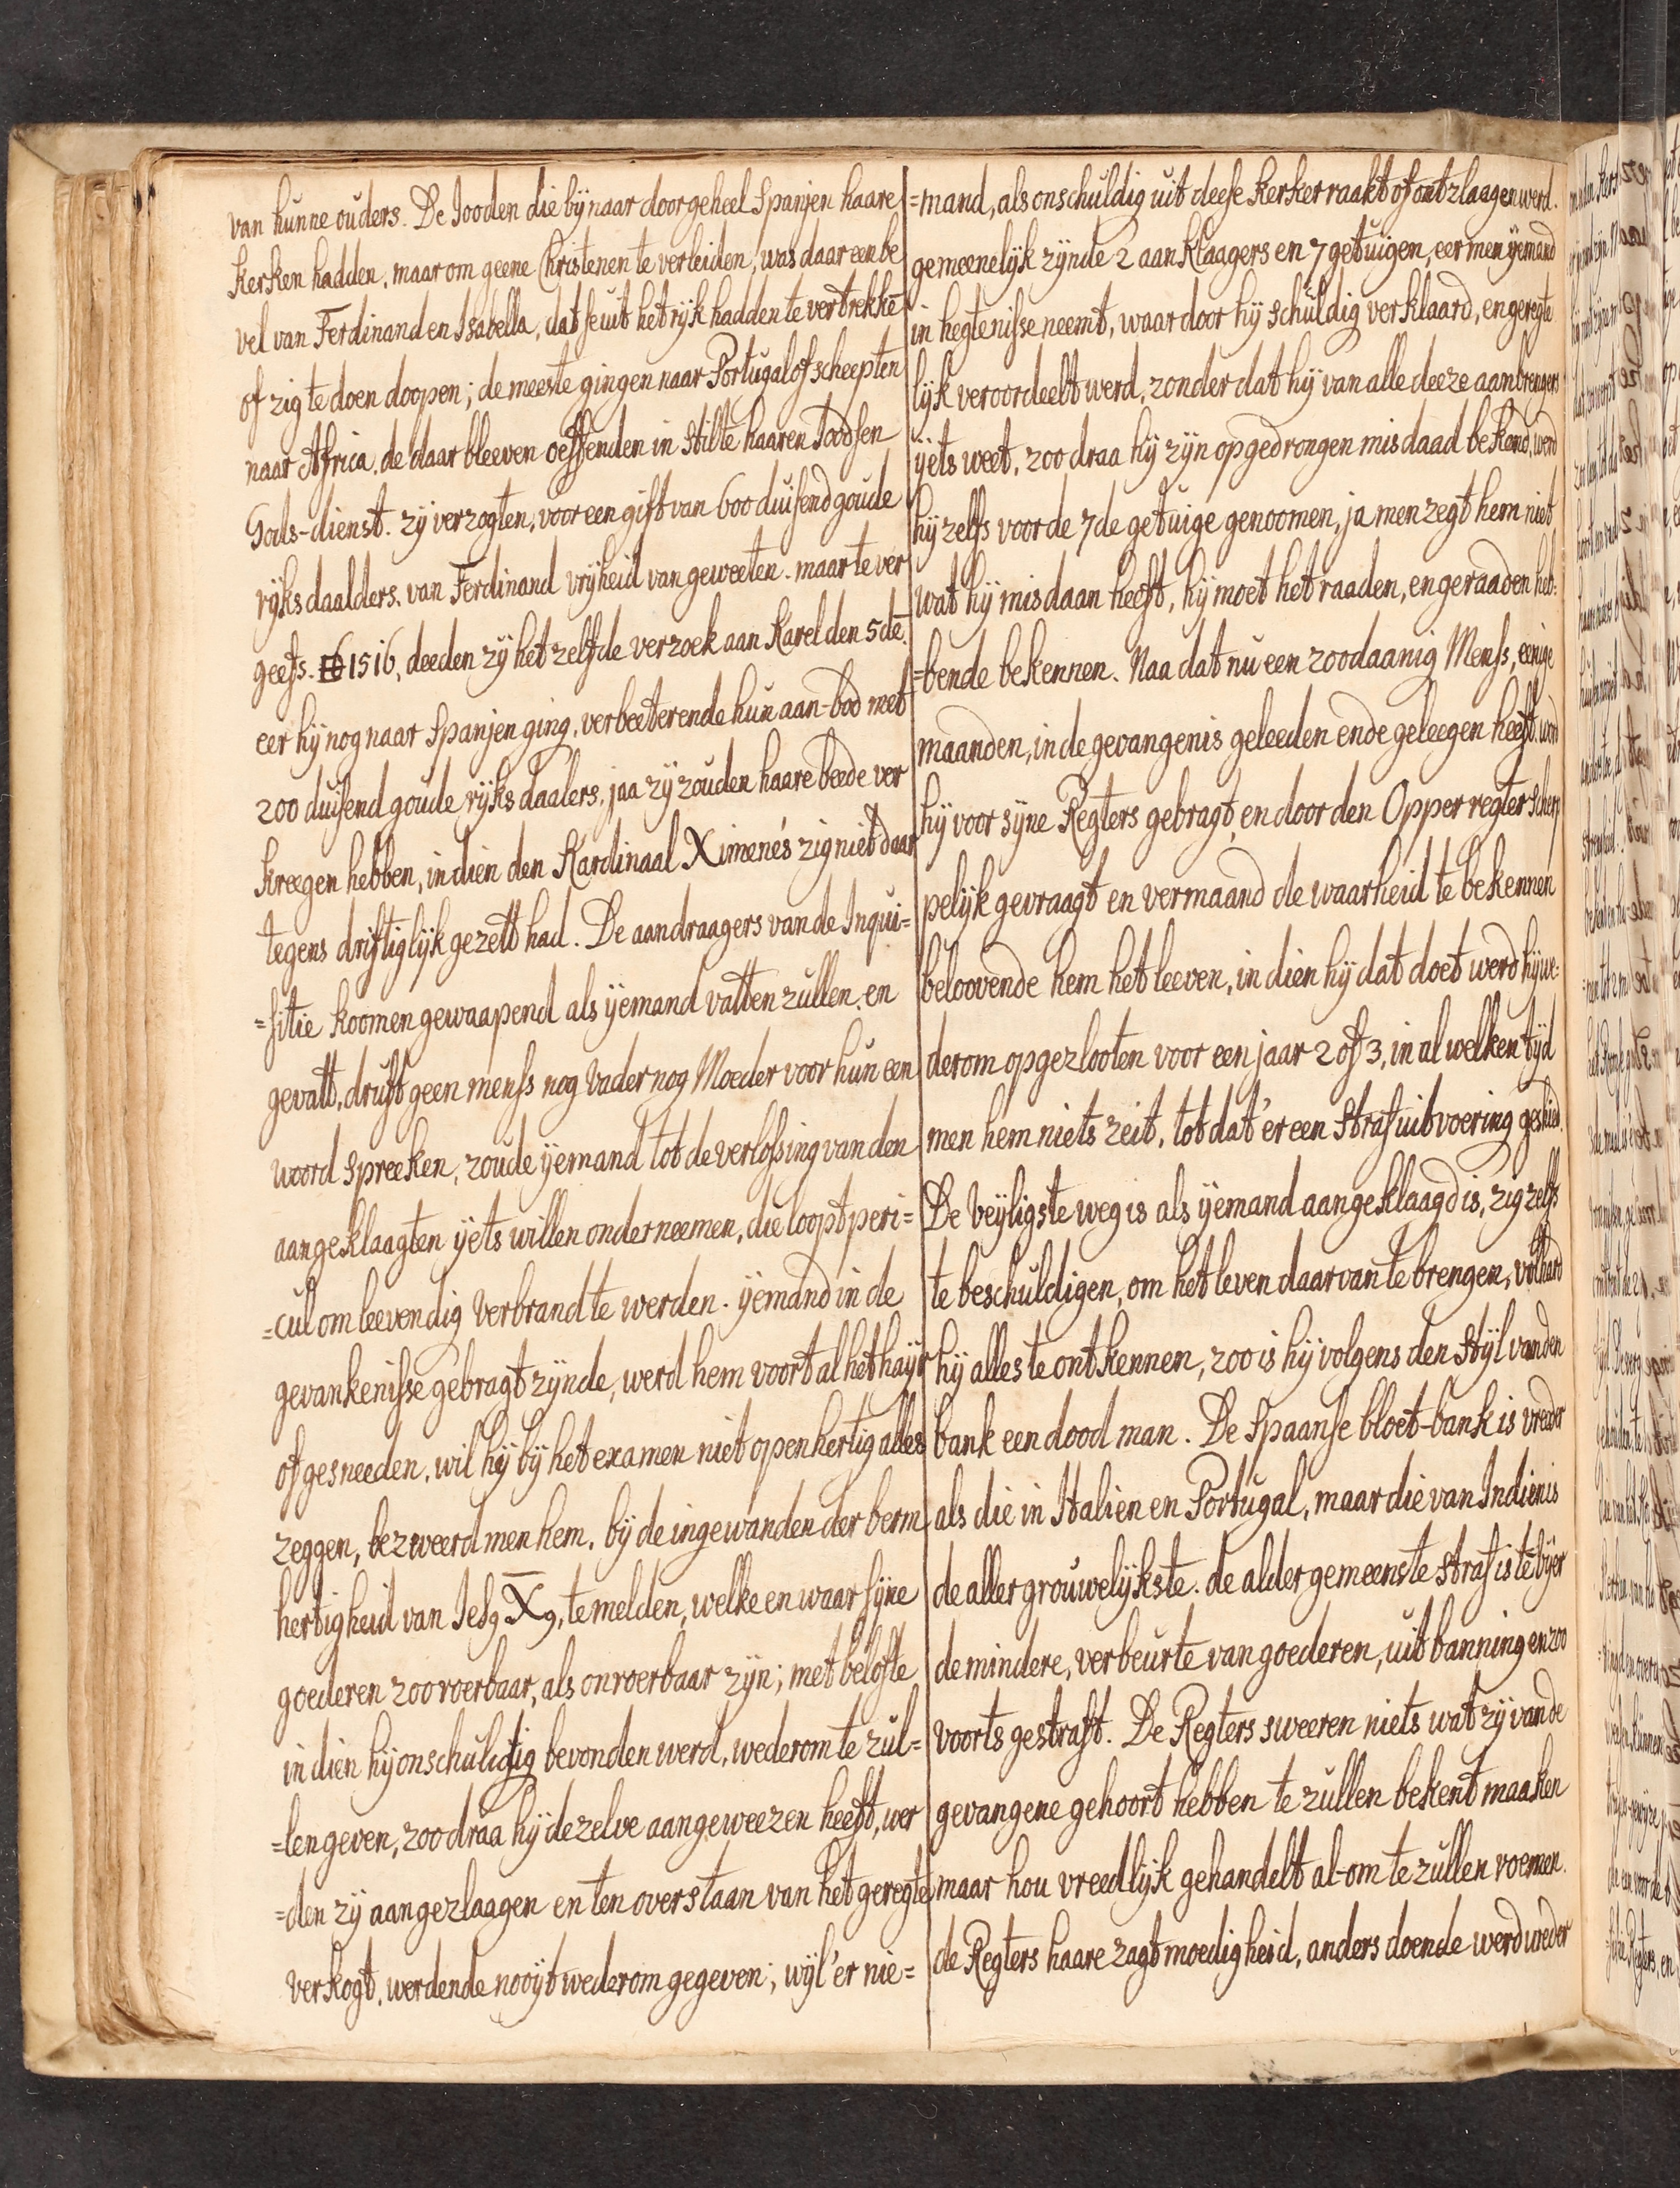 van hunne ouders. De Jooden die bijnaar door geheel Spanjen haare
kerken hadden, maar om geene Christenen te verleiden, was daar een be
vel van Ferdinand en Isabella, dat se uit het rijk hadden te vertrekkē
of zig te doen doopen; de meeste gingen naar Portugal of scheepten
naar Africa. de daar bleeven oeffenden in stilte haaren Joodsen
Gods-dienst. zÿ verzogten, voor een gift van 600 duisend goude
rÿksdaalders, van Ferdinand vrÿheid van geweeten. maar te ver
geefs. 1516, deeden zÿ het zelfde verzoek aan Karel den 5dē.
eer hÿ nog naar Spanjen ging, verbeeterende hun aan-bod met
200 duisend goude rÿks daalers, jaa zÿ zouden haare beede ver
kreegen hebben, in dien den Kardinaal Ximenés zig niet daar
tegens driftiglÿk gezett had. De aandraagers van de Inqui=
=sitie koomen gewaapend als ÿemand vatten zullen, en
gevatt, druft geen menss nog Vader nog Moeder voor hun een
woord spreeken, zoude ÿemand tot de verlossing van den
aangeklaagten ÿets willen onderneemen, die loopt peri=
=cul om leevendig verbrand te werden. ÿemand in de
gevankenisse gebragt zÿnde, werd hem voort al het haÿr
of gesneeden, wil hÿ bÿ het examen niet openhertig alles
zeggen, bezweerd men hem, bÿ de ingewanden der berm
hertigheid van Jes9 X9, te melden, welke en waar sÿne
goederen zoo roerbaar, als onroerbaar zÿn; met belofte
in dien hÿ onschuldig bevonden werd, wederom te zul=
=len geven, zoo draa hÿ dezelve aangeweezen heeft, wer
=den zÿ aangezlaagen en ten overstaan van het geregte
verkogt, werdende nooÿt wederom gegeven; wÿl 'er nie=
=mand, als onschuldig uit deese kerker raakt of ontzlaagen werd.
gemeenelÿk zÿnde 2 aanklaagers en 7 getuigen, eer men ÿemand
in hegtenisse neemt, waar door hÿ schuldig verklaard, en geregte
lÿk veroordeelt werd, zonder dat hÿ van alle deeze aanbrengers
ÿets weet, zoo draa hÿ zÿn opgedrongen misdaad bekend, werd
hÿ zelfs voor de 7de getuige genoomen, ja men zegt hem niet
wat hÿ misdaan heeft, hÿ moet het raaden, en geraaden heb:
=bende bekennen. Naa dat nu een zoodaanig Menss, eenige
maanden, in de gevangenis geleeden ende geleegen heeft, word
hÿ voor sÿne Regters gebragt, en door den Opper regter scherp
pelÿk gevraagt en vermaand de waarheid te bekennen
beloovende hem het leeven, in dien hÿ dat doet werd hÿ we:
derom opgezlooten voor een jaar 2 of 3, in al welken tÿd
men hem niets zeit, tot dat 'er een straf uitvoering geskied.
De veÿligste weg is als ÿemand aangeklaagd is, zig zelfs
te beschuldigen, om het leven daar van te brengen, volhard
hÿ alles te ontkennen, zoo is hÿ volgens den stÿl van den
bank een dood man. De Spaanse bloet-bank is vreeder
als die in Italien en Portugal, maar die van Indien is
de aller grouwelÿkste. de alder gemeenste straf is te vÿer
de mindere, verbeurte van goederen, uit banning en zoo
voorts gestraft. De Regters sweeren niets wat zÿ van de
gevangene gehoort hebben te zullen bekent maaken
maar hou vreedlÿk gehandelt al-om te zullen roemen.
de Regters haare zagtmoedigheid, anders doende werd weder